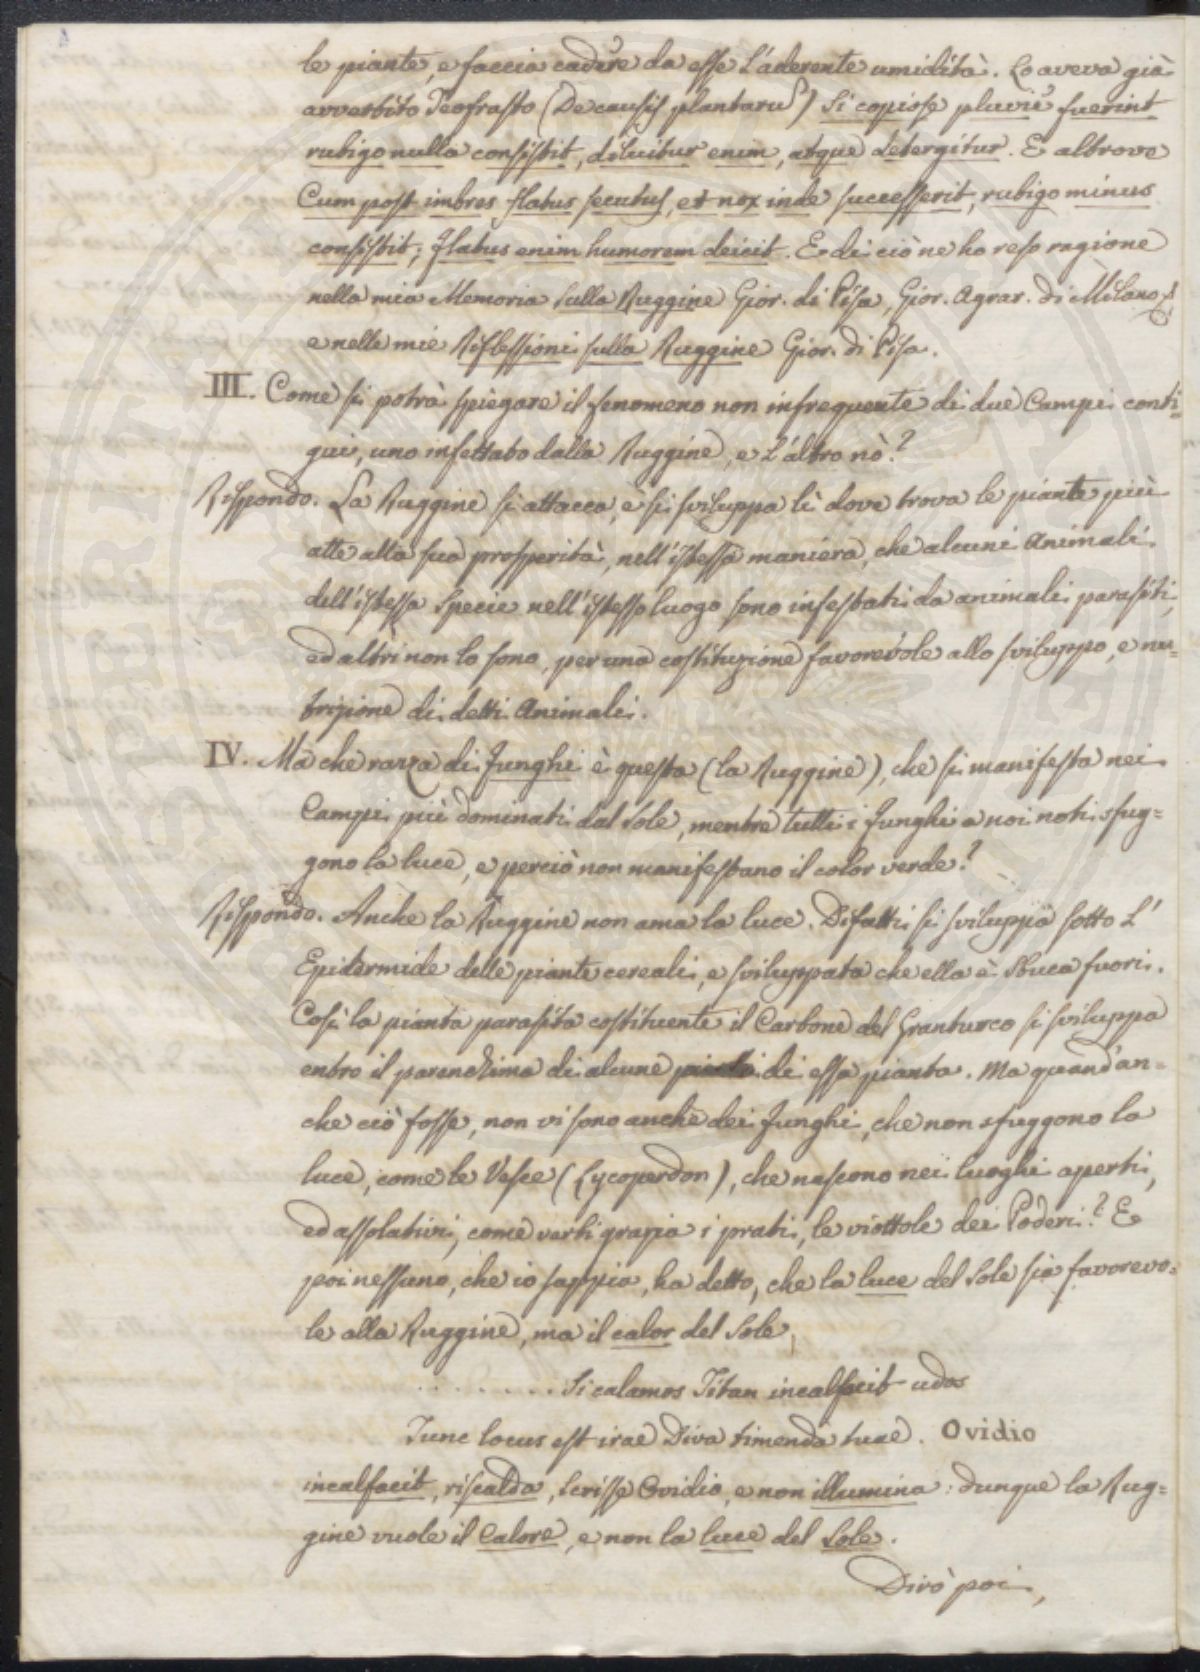 le piante, e faccia cadere da esse l'aderente umidità. Lo aveva già
avvertito Teofrasto (De causis plantarum) Si copiose pluviè fuerint
rubigo nulla consistit, diluitur enim, atque detergitur. E altrove
Cum post imbres flatus secutus, et nox inde successerit, rubigo minus
consistit; flatus enim humorem deicit. E di ciò ne ho reso ragione
nella mia Memoria sulla Ruggine Gior. di Pisa, Gior. Agrar. di Milano,
e nelle mie Riflessioni sulla Ruggine Gior. di Pisa.
III. Come si potrà spiegare il fenomeno non infrequente di due Campi conti=
gui, uno infettato dalla Ruggine, e l'altro nò?
Rispondo. La Ruggine si attacca, e si sviluppa lì dove trova le piante più
atte alla sua prosperità, nell'istessa maniera, che alcuni Animali
dell'istessa Specie nell'istesso luogo sono infestati da animali parasiti,
ed altri non lo sono, per una costituzione favorevole allo sviluppo, e nu=
trizione di detti Animali.
IV. Ma che razza di Funghi è questa (la Ruggine), che si manifesta nei
Campi più dominati dal Sole, mentre tutti i funghi a noi noti sfug=
gono la luce, e perciò non manifestano il color verde?
Rispondo. Anche la Ruggine non ama la luce. Difatti si sviluppa sotto l'
Epidermide delle piante cereali, e sviluppata che ella è sbuca fuori.
Così la pianta parasita costituente il Carbone del Granturco si sviluppa
entro il parenchima di alcune di essa pianta. Ma quand'an=
che ciò fosse, non vi sono anche dei Funghi, che non sfuggono la
luce, come le Vesce (Lycoperdon), che nascono nei luoghi aperti,
ed assolativi, come verbi grazia i prati, le viottole dei Poderi? E
poi nessuno, che io sappia, ha detto, che la luce del Sole sia favorevo=
le alla Ruggine, ma il calor del Sole,
. . . . . . . . Si calamos Titan incalfacit udos
Tunc locus est irae Diva timenda tuae. Ovidio
incalfacit, riscalda, scrisse Ovidio, e non illumina: dunque la Rug=
gine vuole il Calore, e non la luce del Sole.
Dirò poi,